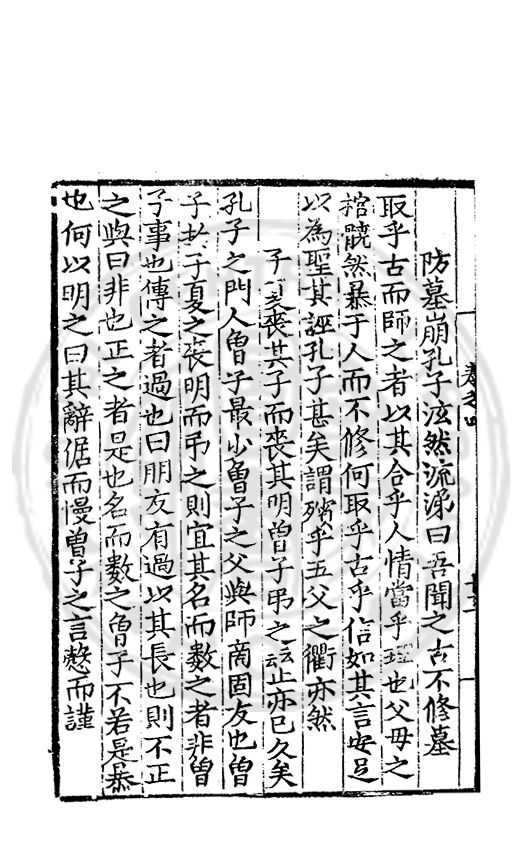 卷之四
十二
防墓崩孔子泫然流涕曰吾聞之古不修墓
取乎古而師之者以其合乎人情當乎理也父母之
棺髐然暴于人而不修何取乎古乎信如其言安足
以為聖其誣孔子甚矣謂殯乎五父之衢亦然
子夏喪其子而喪其明曾子弔之云止亦已久矣
孔子之門人曾子最少曾子之父與師商固友也曾
子於子夏之喪明而弔之則宜其名而數之者非曾
子事也傳之者過也曰朋友有過以其長也則不正
之與曰非也正之者是也名而數之曾子不若是暴
也何以明之曰其辭倨而慢曾子之言愨而謹